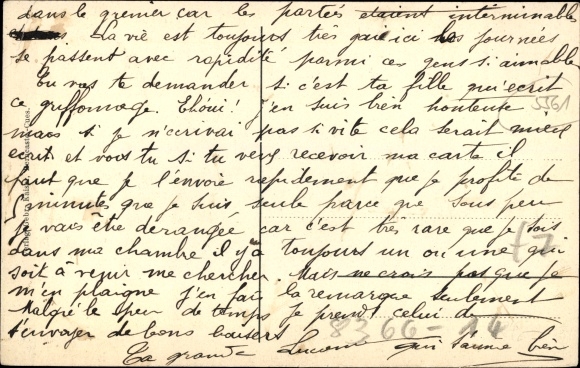 dans le grenier car les parties étaient interminables
La vie est toujours très gaie ici les journées
se passent avec rapidité parmi ces gens si aimables
Tu vas te demander si c'est ta fille qui écrit
ce griffonnage. Eh oui! J'en suis bien honteuse
mais si je n'écrivai pas si vite cela serait mieux
écrit et vois tu si tu veux recevoir ma carte il
faut que je l'envoie rapidement que je profite de
5 minutes que je suis seule parce que sous peu
je vais être dérangée car c'est très rare que je sois
dans ma chambre il y a toujours un ou une qui
soit à venir me chercher. Mais ne crois pas que je
m'en plaigne j'en fais la remarque seulement
Malgré le peu de temps je prends celui de
t'envoyer de bons baisers
Ta grande Lucienne qui t'aime bien
5561
17
8366-14